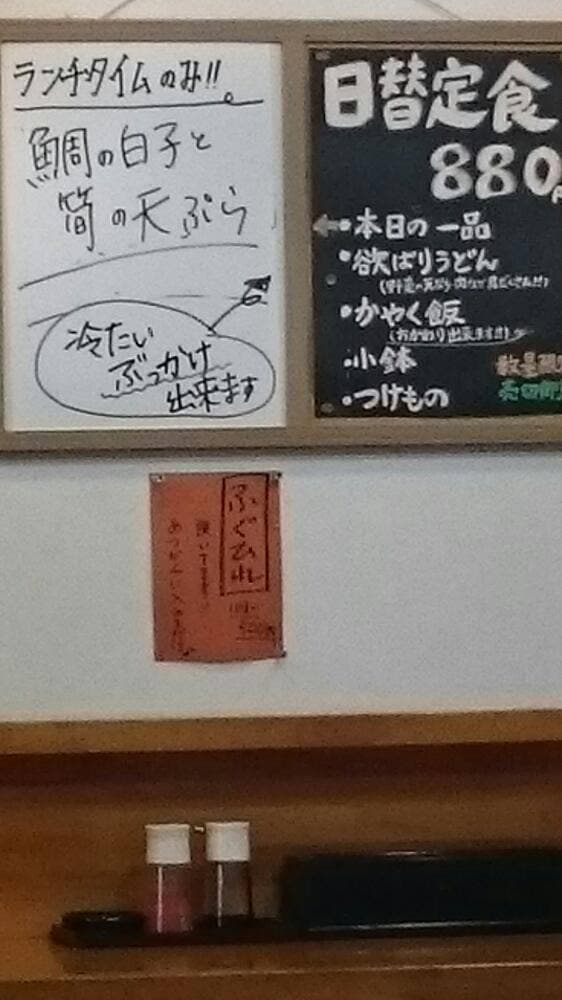 ランチタイムのみ!!
鯛の白子と
筍の天ぷら
冷たい
ぶっかけ
出来ます
日替定食
880
・本日の一品
・欲ばりうどん
・かやく飯
(おかわり出来ます!!)
・小鉢
・つけもの
数量限
売切
ふぐひれ